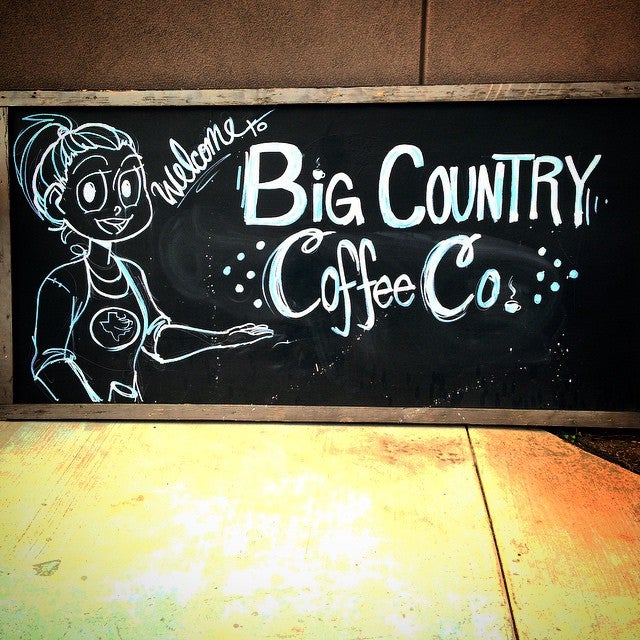 Welcome to
BiG COUNTRY
Coffee Co.